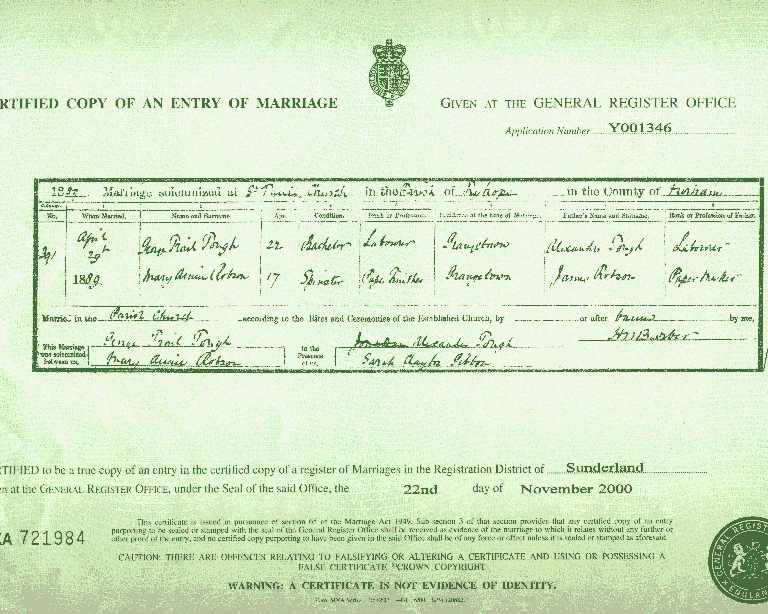 RTIFIED COPY OF AN ENTRY OF MARRIAGE
GIVEN AT THE GENERAL REGISTER OFFICE
Application Number Y001346
Marriage solemnized at St Church in the Parish of in the County of Durham
No. When Married. Name and Surname. Age. Condition. Rank or Profession. Residence at the time of Marriage. Father's Name and Surname. Rank or Profession of Father.
291 April 29th 1889. George Trail Tough 22 Bachelor Labourer Grangetown Alexander Tough Labourer
Mary Annie Robson 17 Spinster Paper Finisher Grangetown James Robson Paper Maker
Married in the Parish Church according to the Rites and Ceremonies of the Established Church, by or after banns by me,
This Marriage was solemnized between us,
George Trail Tough
Mary Annie Robson
in the Presence of us,
Alexander Tough
Sarah Gibbon
RTIFIED to be a true copy of an entry in the certified copy of a register of Marriages in the Registration District of Sunderland
en at the GENERAL REGISTER OFFICE, under the Seal of the said Office, the 22nd day of November 2000
XA 721984
This certificate is issued in pursuance of section 65 of the Marriage Act 1949. Sub-section 3 of that section provides that any certified copy of an entry
purporting to be sealed or stamped with the seal of the General Register Office shall be received as evidence of the marriage to which it relates without any further or
other proof of the entry, and no certified copy purporting to have been given in the said Office shall be of any force or effect unless it is sealed or stamped as aforesaid.
CAUTION: THERE ARE OFFENCES RELATING TO FALSIFYING OR ALTERING A CERTIFICATE AND USING OR POSSESSING A
FALSE CERTIFICATE ©CROWN COPYRIGHT
WARNING: A CERTIFICATE IS NOT EVIDENCE OF IDENTITY.
GENERAL REGIST
ENGLAND